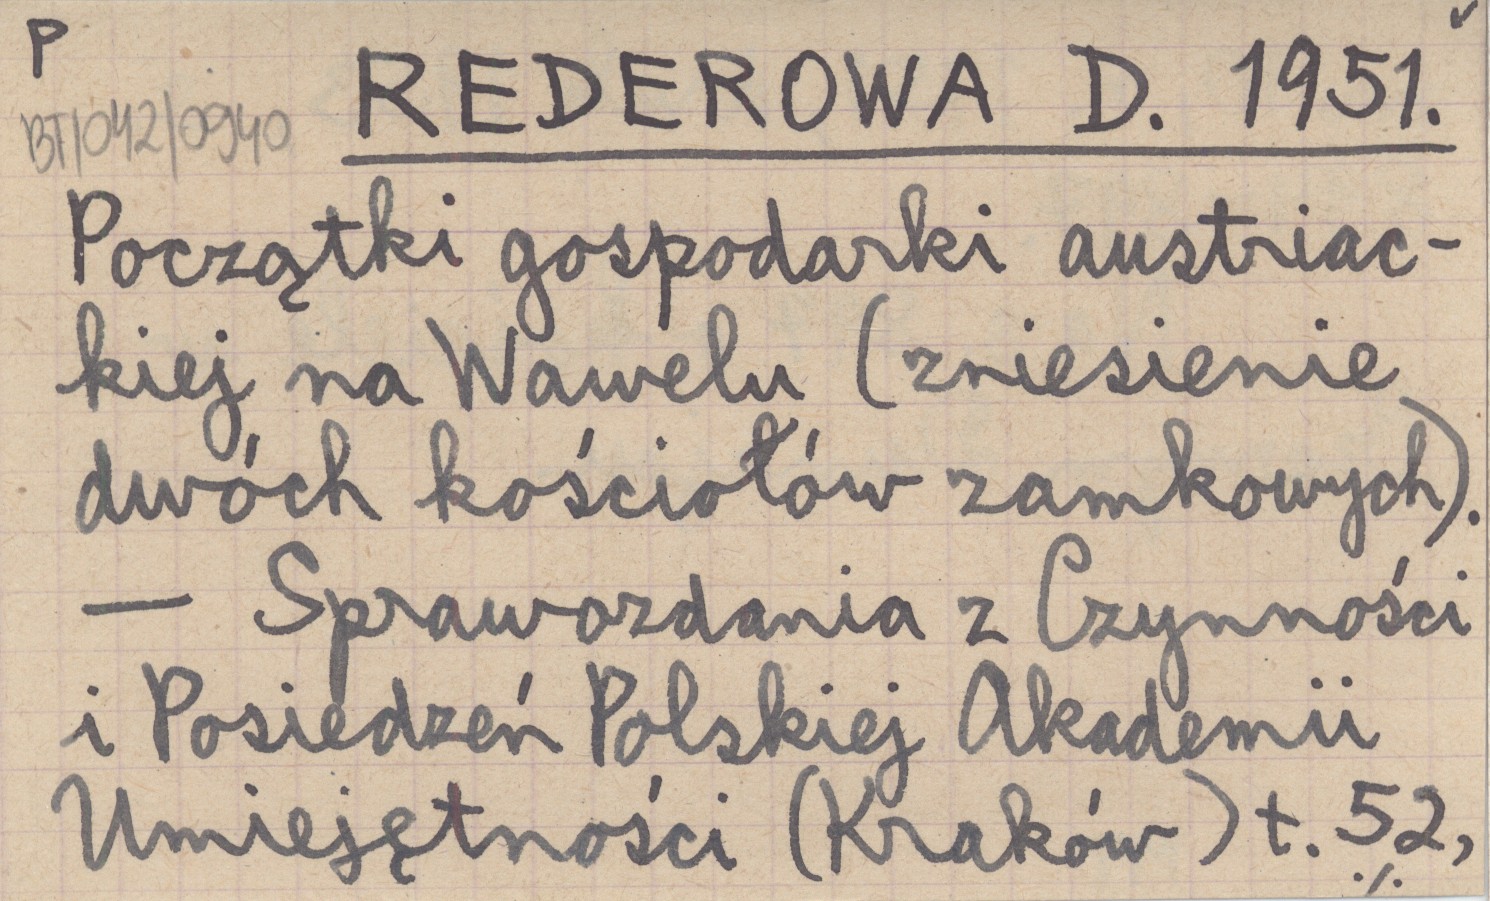 P
REDEROWA D. 1951.
BT/042/0940
Początki gospodarki austriac-
kiej na Wawelu (zniesienie
dwóch kościołów zamkowych).
— Sprawozdania z Czynności
i Posiedzeń Polskiej Akademii
Umiejętności (Kraków) t. 52,
./.